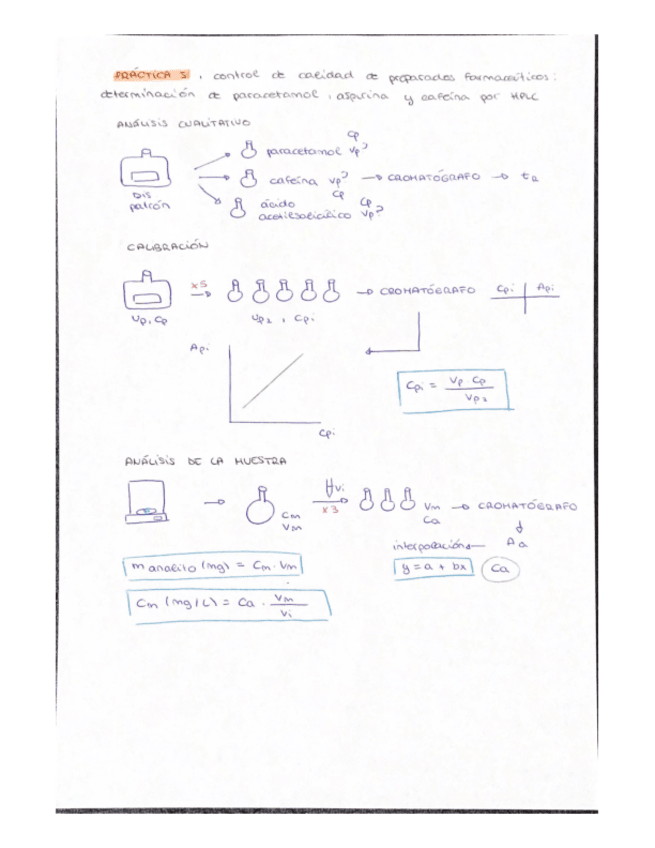 PRÁCTICA 5. control de calidad de preparados farmacéuticos:
determinación de paracetamol, aspirina y cafeína por HPLC
ANÁLISIS CUALITATIVO
paracetamol Cp Vp?
Dis patrón
cafeína Vp? Cp → CROMATÓGRAFO → tR
ácido acetilsalicílico Cp Vp?
CALIBRACIÓN
Vp, Cp x5 → Vp2, Cpi → CROMATÓGRAFO Cpi Api
Api
Cpi = Vp Cp / Vp2
Cpi
ANÁLISIS DE LA MUESTRA
→ Cm Vm Vi x3 → Vm Ca → CROMATÓGRAFO
interpolación Aa
m analito (mg) = Cm · Vm
y = a + bx Ca
Cm (mg/L) = Ca · Vm / Vi